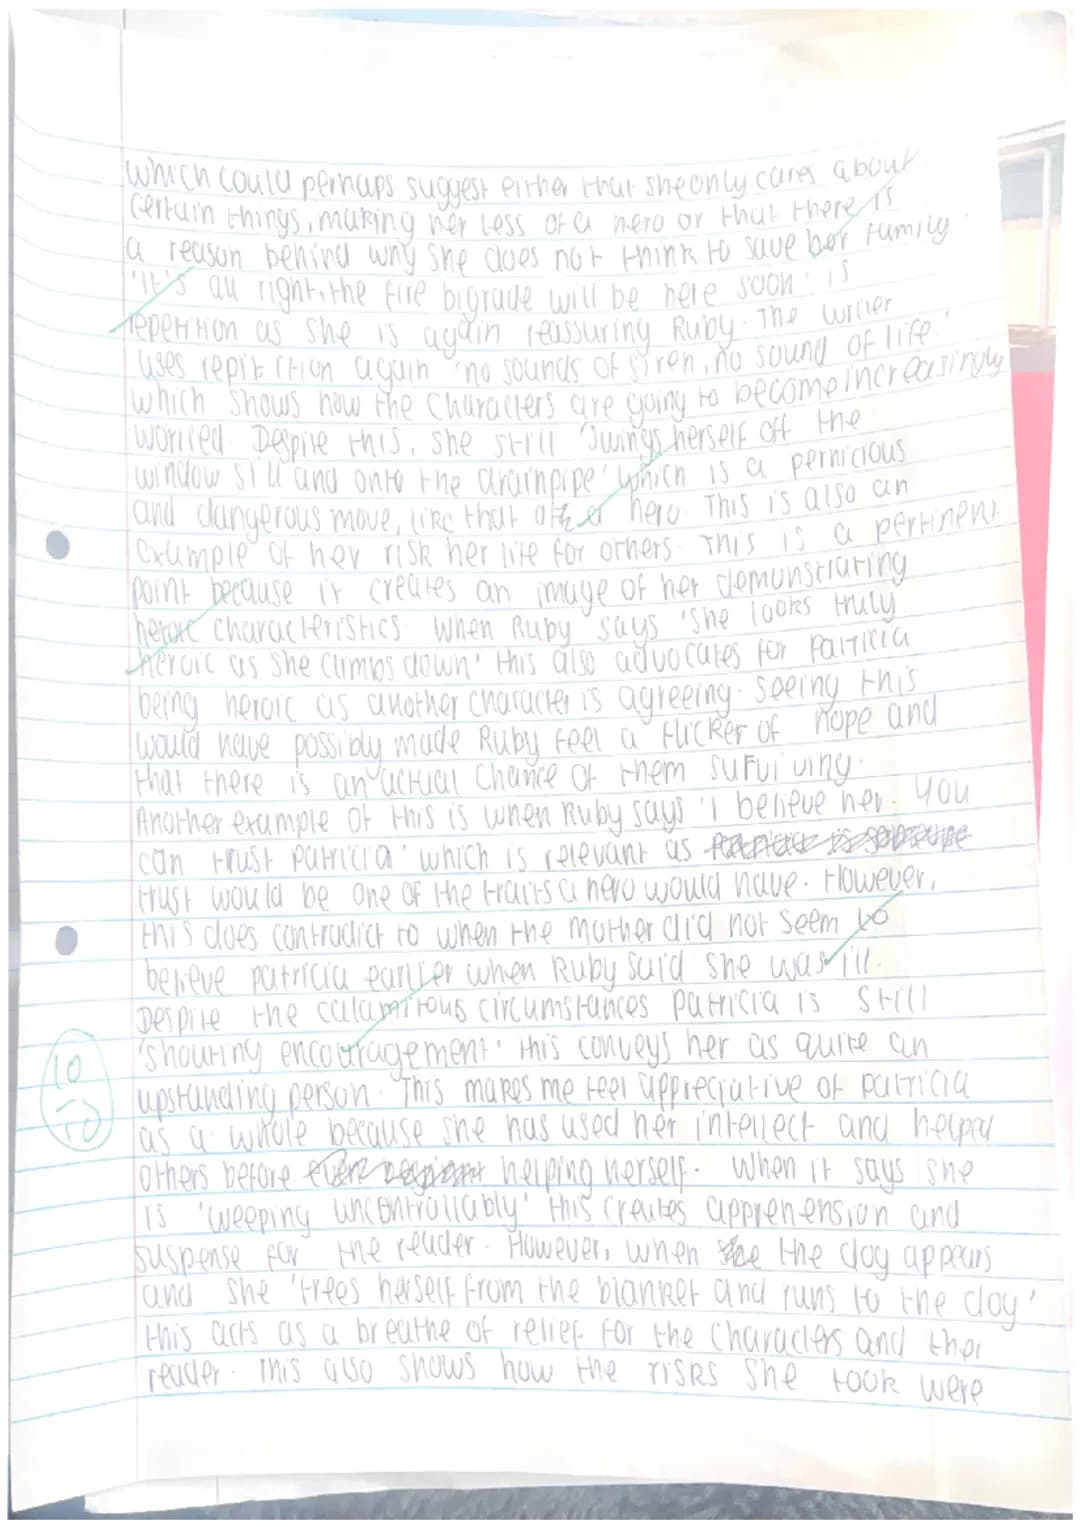 which could perhaps suggest either that she only cares about
certain things, making her less of a hero or that there is
a reason behind why she does not think to save her family.
'It's all right, the fire bigrade will be here soon' is
repetition as she is again reassuring Ruby. The writer
uses repitition again 'no sounds of siren, no sound of life.'
which shows how the characters are going to become increasingly
worried. Despite this, she still 'swings herself off the
window sill and onto the drainpipe' which is a pernicious
and dangerous move, like that of a hero. This is also an
example of her risk her life for others. This is a pertinent
point because it creates an image of her demonstrating
heroic characteristics. When Ruby says 'She looks truly
heroic as she climbs down' this also advocates for Patricia
being heroic as another character is agreeing. Seeing this
would have possibly made Ruby feel a flicker of hope and
that there is an actual chance of them surviving.
Another example of this is when Ruby says 'I believe her. You
can trust Patricia' which is relevant as
trust would be one of the traits a hero would have. However,
this does contradict to when the mother did not seem to
believe patricia earlier when Ruby said she was ill.
Despite the calamitous circumstances patricia is still
'shouting encouragement' this conveys her as quite an
10
10
upstanding person. This makes me feel appreciative of patricia
as a whole because she has used her intellect and helped
others before helping herself. When it says she
is 'weeping uncontrollably' this creates apprehension and
suspense for the reader. However, when the dog appears
and she 'frees herself from the blanket and runs to the dog'
this acts as a breathe of relief for the characters and the
reader. This also shows how the risks she took were